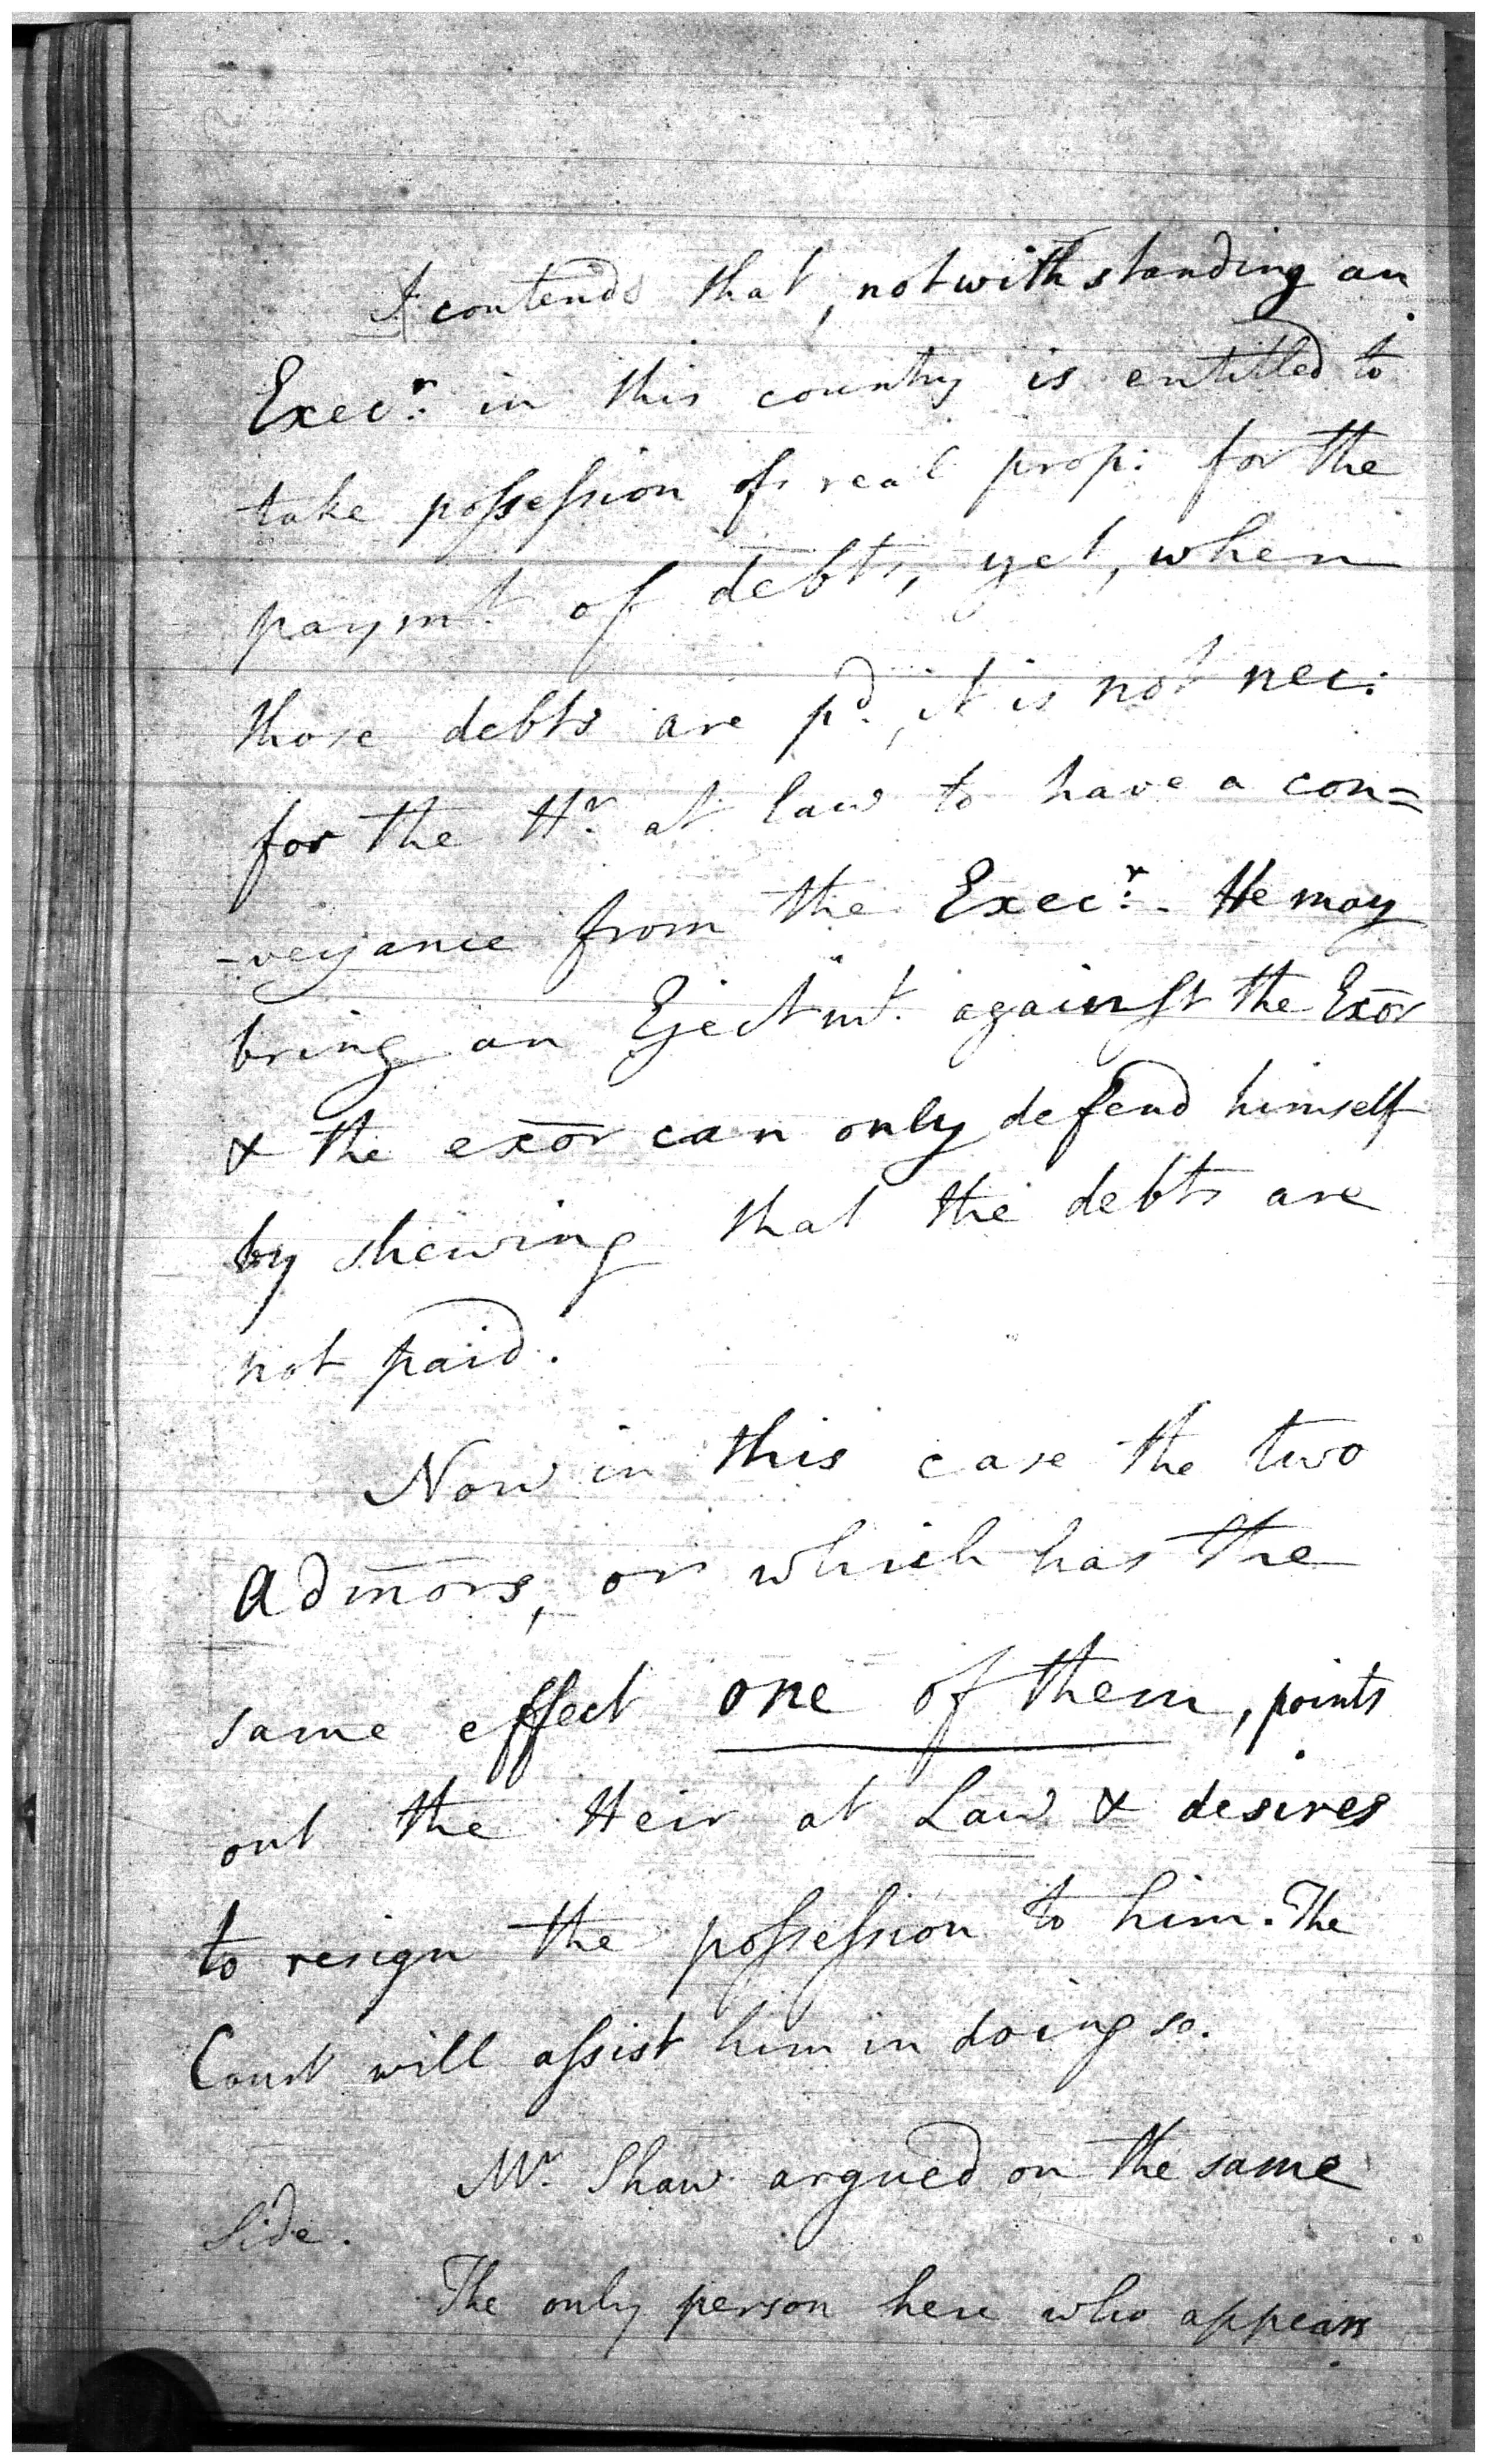 I contends that, notwithstanding an
Exec.r in this country is entitled to
take possession of real prop: for the
paym.t of debts, yet, when
those debts are p.d, it is not nec:
for the H.r at law to have a con=
-veyance from the Exec.r. He may
bring an Ejectm.t against the Exōr
& the exōr can only defend himself
by shewing that the debts are
not paid.
Now in this case the two
Adm̄ors, or which has the
same effect one of them, points
out the Heir at Law & desires
to resign the possession to him. The
Court will assist him in doing so.
M.r Shaw argued on the same
side.
The only person here who appears